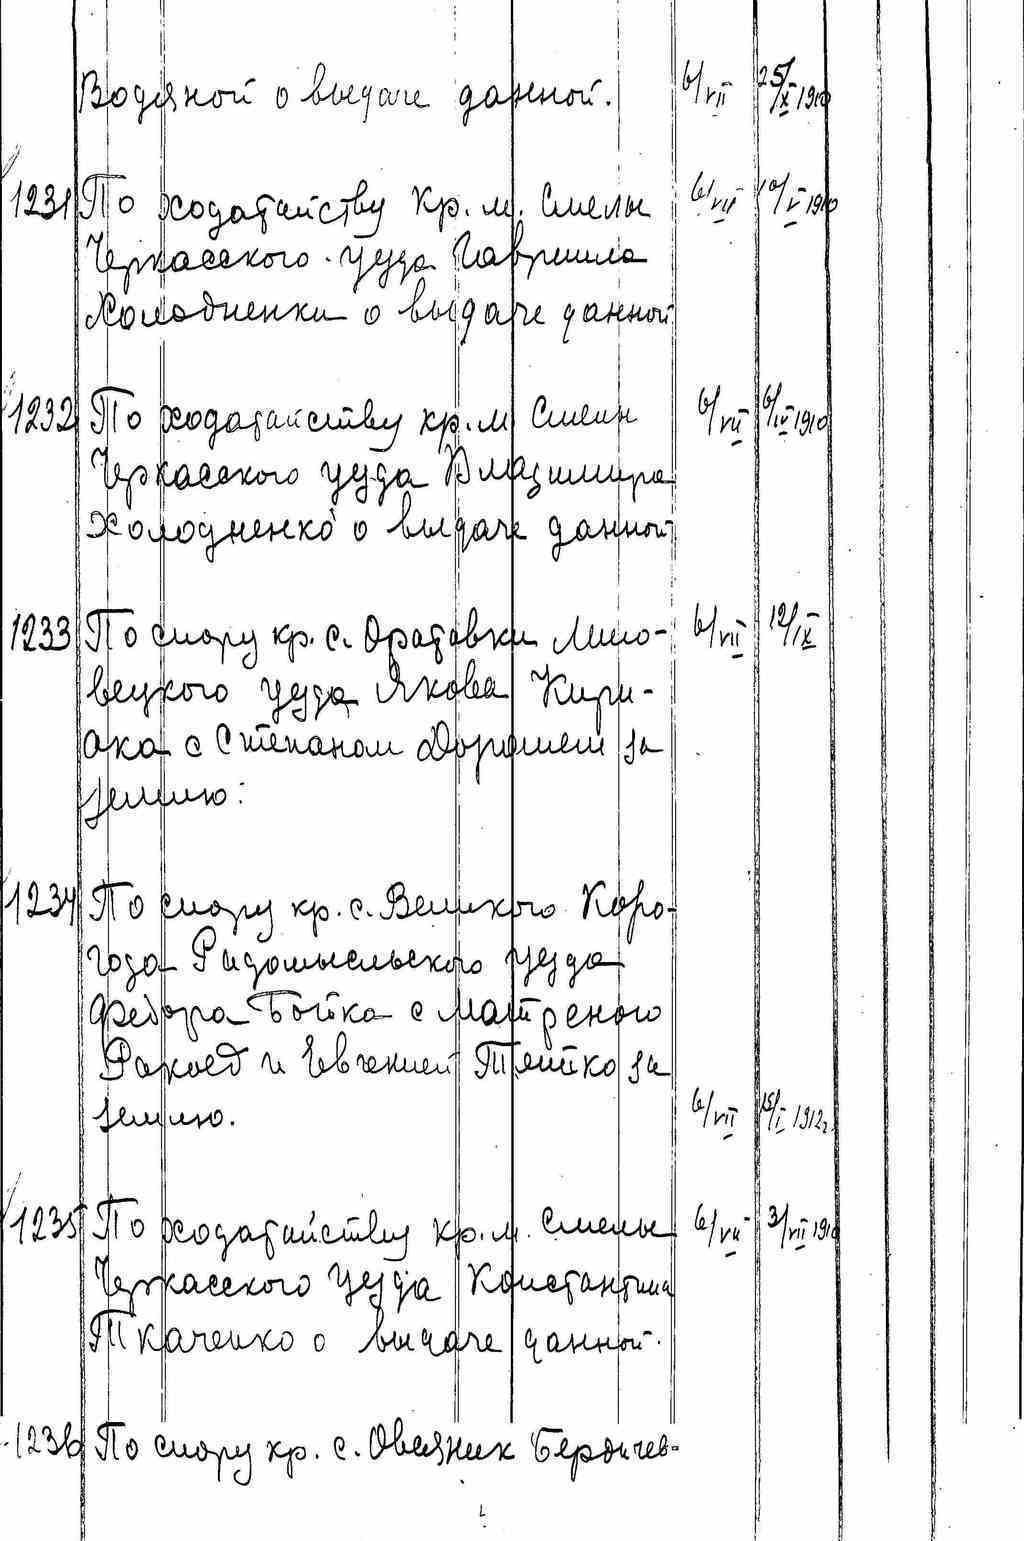 Водяной о выдаче данной. 6/VII 25/X 1910
1231 По ходатайству кр. м. Смелы 6/VII 10/V 1910
Черкасского уезда Гавриила
Холодненки о выдаче данной
1232 По ходатайству кр. м. Смелы 6/VII 6/IV 1910
Черкасского уезда Владимира
Холодненко о выдаче данной
1233 По спору кр. с. Оратовки Липо- 6/VII 12/IX
вецкого уезда Якова Кири-
ака с Степаном Дорошем за
землю:
1234 По спору кр. с. Великого Коро-
года Радомысльского уезда
Федора Бойка с Матреною
Ракоед и Евгенией Тетко за
землю. 6/VII 15/I 1912г.
1235 По ходатайству кр. м. Смелы 6/VII 3/VII 1910
Черкасского уезда Константина
Ткаченко о выдаче данной.
1236 По спору кр. с. Овсяник Бердичев-